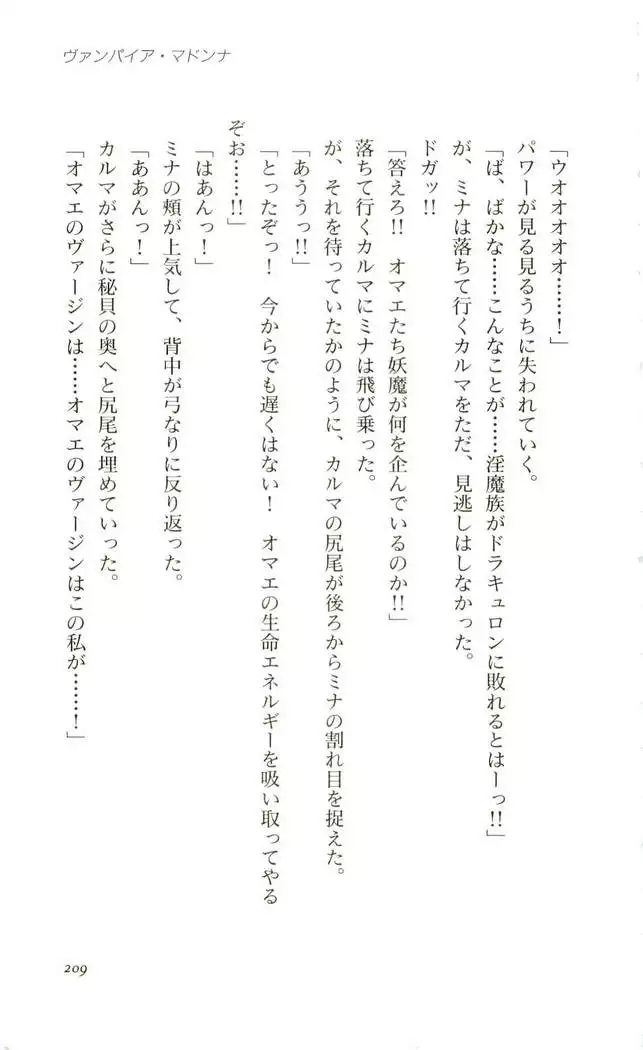 ヴァンパイア・マドンナ
「ウオオオオオ……！」
パワーが見る見るうちに失われていく。
「ば、ばかな……こんなことが……淫魔族がドラキュロンに敗れるとはーっ!!」
が、ミナは落ちて行くカルマをただ、見逃しはしなかった。
ドガッ!!
「答えろ!!　オマエたち妖魔が何を企んでいるのか!!」
落ちて行くカルマにミナは飛び乗った。
が、それを待っていたかのように、カルマの尻尾が後ろからミナの割れ目を捉えた。
「あううっ!!」
「とったぞっ！　今からでも遅くはない！　オマエの生命エネルギーを吸い取ってやる
ぞお……!!」
「はあんっ！」
ミナの頬が上気して、背中が弓なりに反り返った。
「ああんっ！」
カルマがさらに秘貝の奥へと尻尾を埋めていった。
「オマエのヴァージンは……オマエのヴァージンはこの私が……！」
209